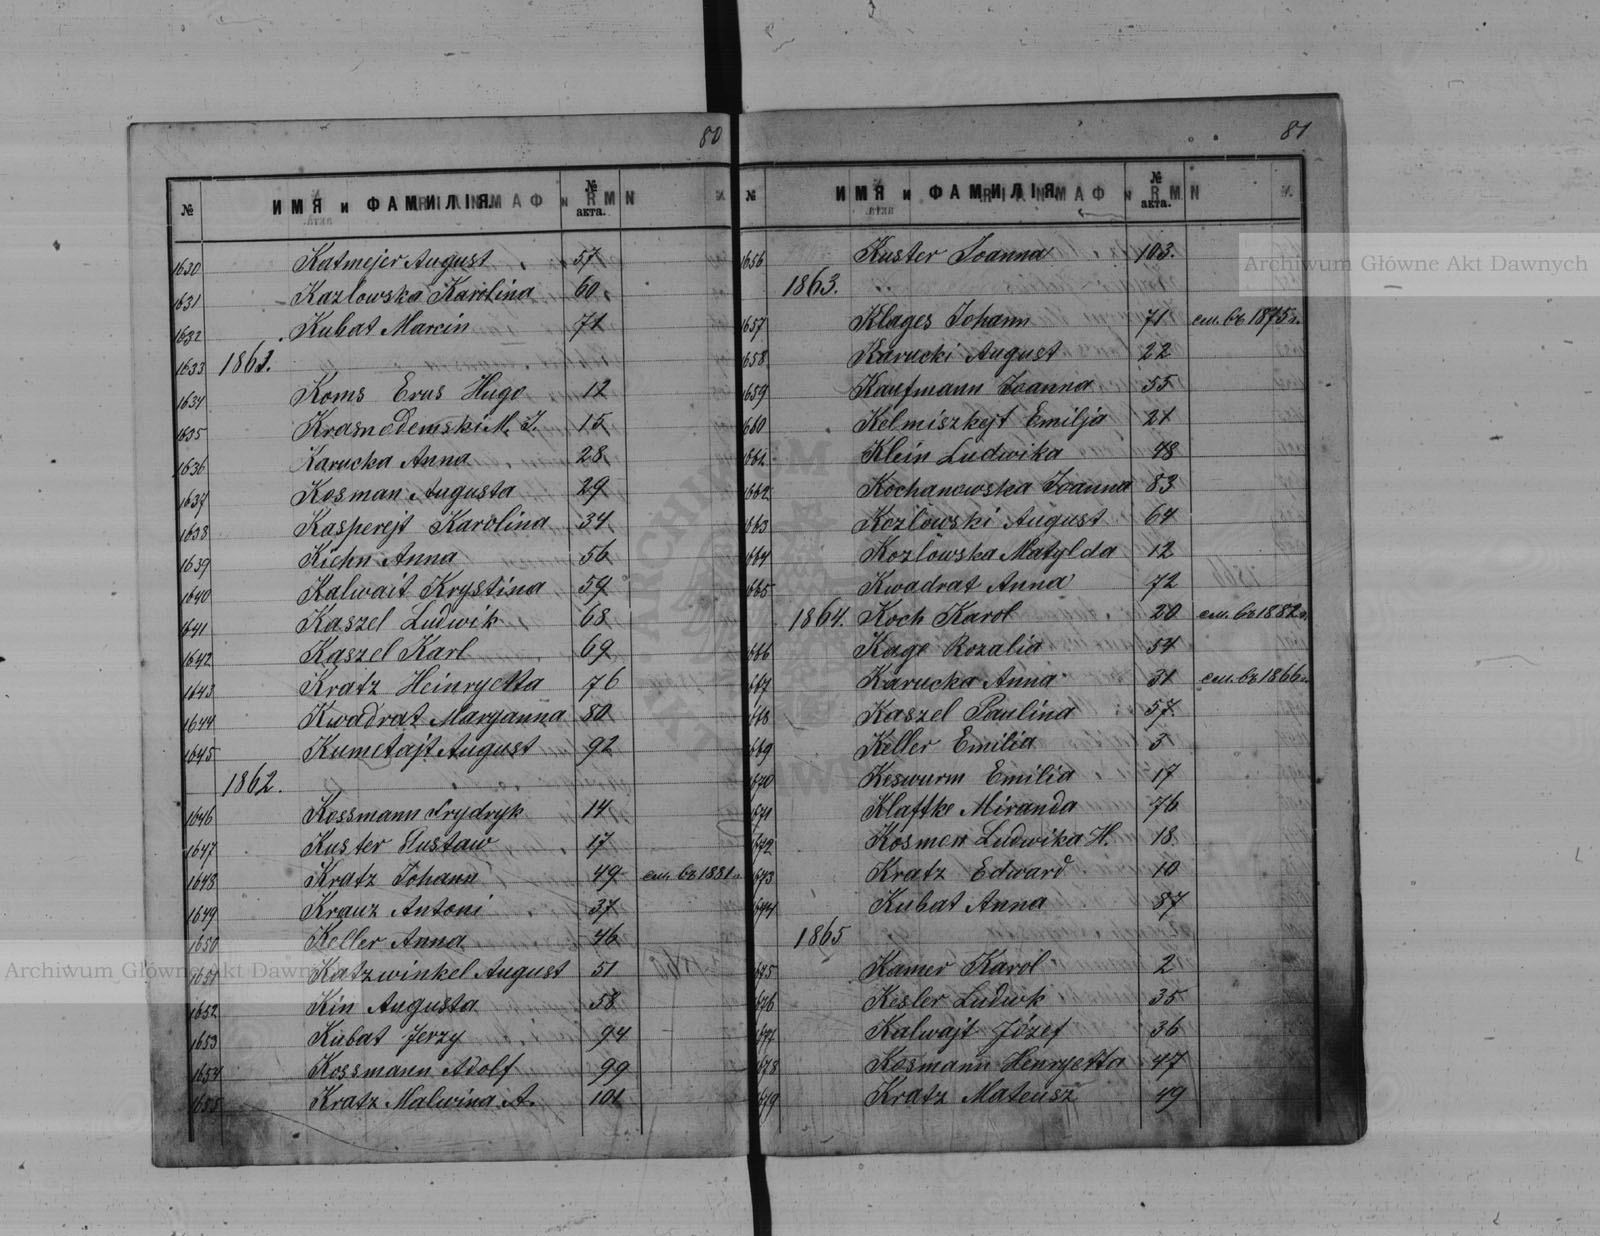 80
№ ИМЯ и ФАМИЛІЯ № акта.
1630 Katmejer August 57
1631 Kazlowska Karolina 60
1632 Kubat Marcin 71
1633 1861.
1634 Koms Erus Hugo 12
1635 Krasnodemski M. J. 15
1636 Karucka Anna 28
1637 Kosman Augusta 29
1638 Kasperejt Karolina 34
1639 Kichn Anna 56
1640 Kalwait Krystina 59
1641 Kaszel Ludwik 68
1642 Kaszel Karl 69
1643 Kratz Heinryetta 76
1644 Kwadrat Maryanna 80
1645 Kumetajt August 92
1862.
1646 Kossmann Frydryk 14
1647 Kuster Gustaw 17
1648 Kratz Johann 49 см. въ 1881 г.
1649 Krauz Antoni 37
1650 Keller Anna 46
1651 Katzwinkel August 51
1652 Kin Augusta 58
1653 Kubat Jerzy 94
1654 Kossmann Adolf 99
1655 Kratz Malwina A. 101
81
№ ИМЯ и ФАМИЛІЯ № акта.
1656 Kuster Joanna 103.
1863.
1657 Klages Johann 71 см. въ 1875 г.
1658 Karucki August 22
1659 Kaufmann Joanna 55
1660 Kelmiszkejt Emilja 21
1661 Klein Ludwika 48
1662 Kochanowska Joanna 83
1663 Kozlowski August 64
1664 Kozlowska Matylda 12
1665 Kwadrat Anna 72
1864. Koch Karol 20 см. въ 1882 г.
1666 Kage Rozalia 54
1667 Karucka Anna 31 см. въ 1866 г.
1668 Kaszel Paulina 57
1669 Keller Emilia 3
1670 Keswurm Emilia 17
1671 Klaftke Miranda 76
1672 Kosmen Ludwika H. 18
1673 Kratz Edward 10
1674 Kubat Anna 87
1865
1675 Kamer Karol 2
1676 Kesler Ludwk 35
1677 Kalwajt Józef 36
1678 Kosmann Henryetta 47
1679 Kratz Mateusz 49
Archiwum Główne Akt Dawnych
Archiwum Główne Akt Dawnych